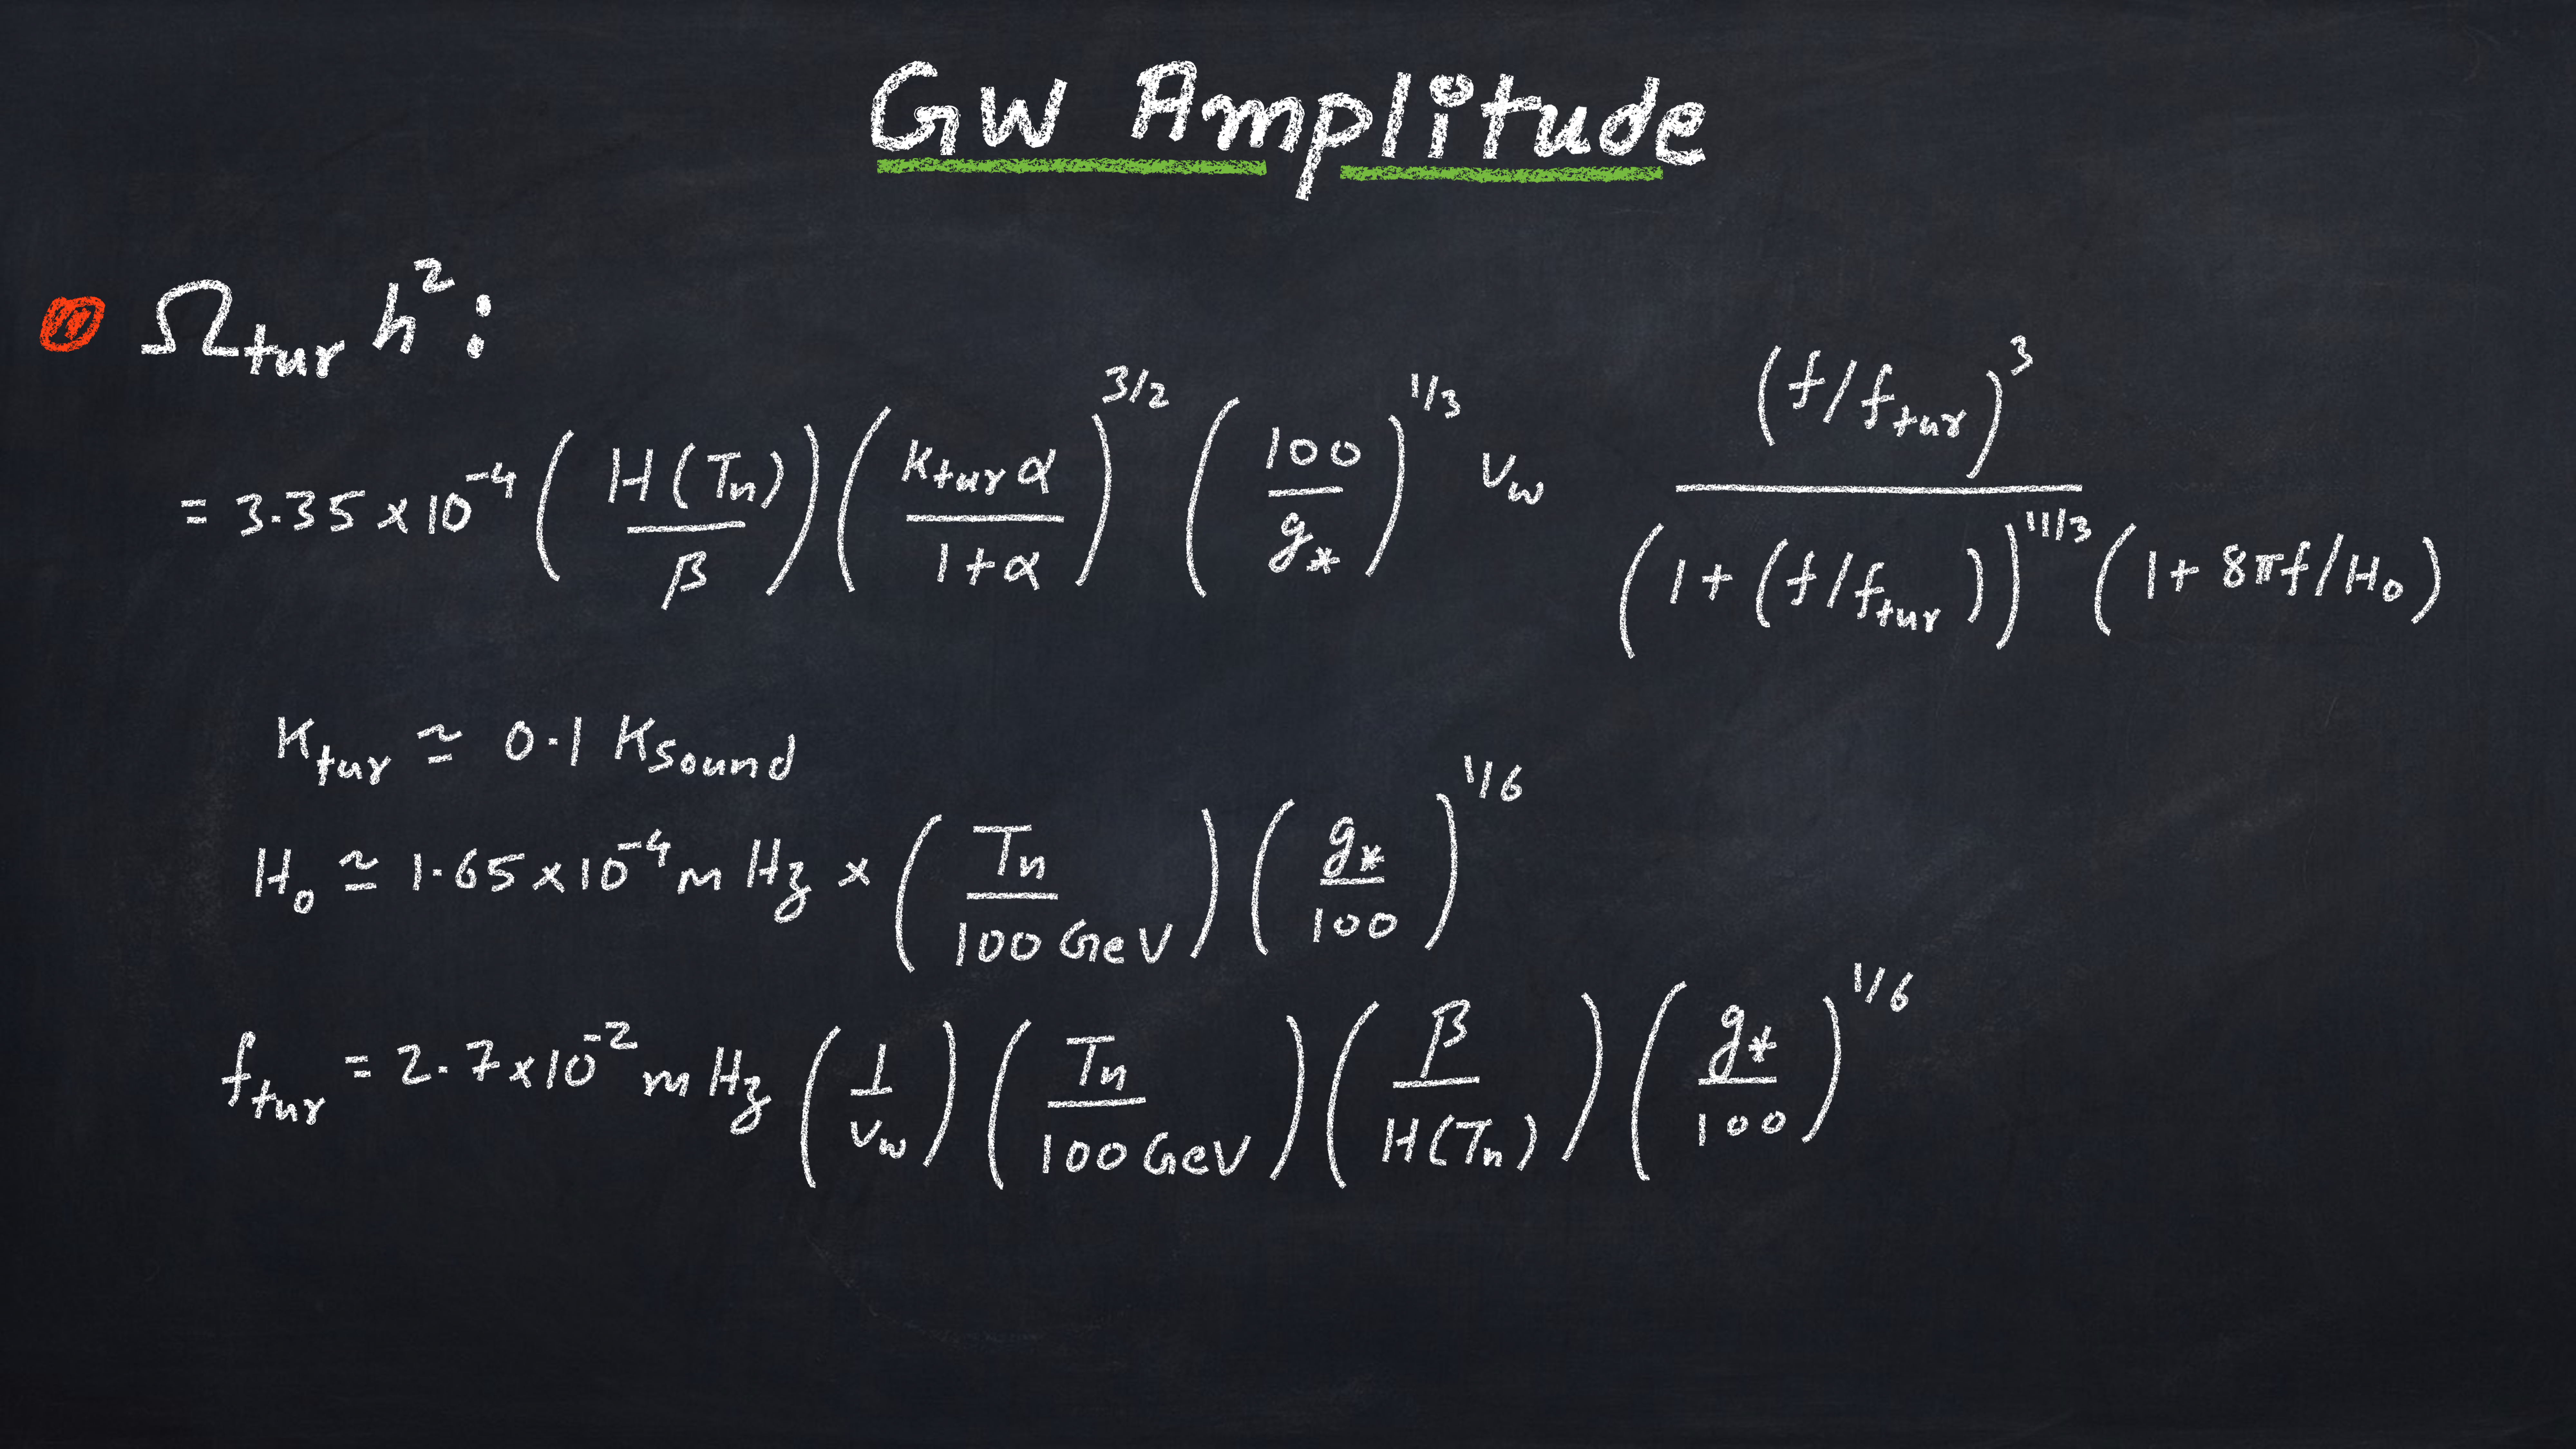 GW Amplitude
Ω_tur h²:
= 3.35 × 10⁻⁴ (H(Tₙ)/β) (κ_tur α/(1+α))^{3/2} (100/g_*)^{1/3} v_w (f/f_tur)³ / ((1 + (f/f_tur))^{11/3} (1 + 8πf/H₀))
κ_tur ≃ 0.1 κ_Sound
H₀ ≃ 1.65 × 10⁻⁴ m Hz × (Tₙ/100 GeV) (g_*/100)^{1/6}
f_tur = 2.7 × 10⁻² m Hz (1/v_w) (Tₙ/100 GeV) (β/H(Tₙ)) (g_*/100)^{1/6}